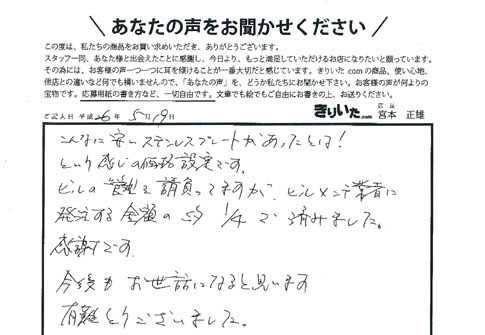 あなたの声をお聞かせください
この度は、私たちの商品をお買い求めいただき、ありがとうございます。
スタッフ一同、あなた様と出会えたことに感謝し、今日より、もっと満足していただけるお店になりたいと願っています。
その為には、お客様の声一つ一つに耳を傾けることが一番大切だと感じています。きりいた.comの商品、使い心地、
他店との違いなど何でも構いませんので、「あなたの声」を、どうか私たちにお聞かせ下さい。お客様の声が何よりの
宝物です。応募用紙の書き方など、一切自由です。文章でも絵でもご自由にお書きの上、お送りください。
ご記入日 平成 26年 5月 19日
きりいた.com 店長 宮本 正雄
こんなに安いステンレスプレートがあったとは!
という感じの価格設定です。
ビルの管理を請負ってますが、ビルメンテ業者に
発注する金額の 1/4で済みました。
感謝です。
今後もお世話になると思います
有難とうございました。